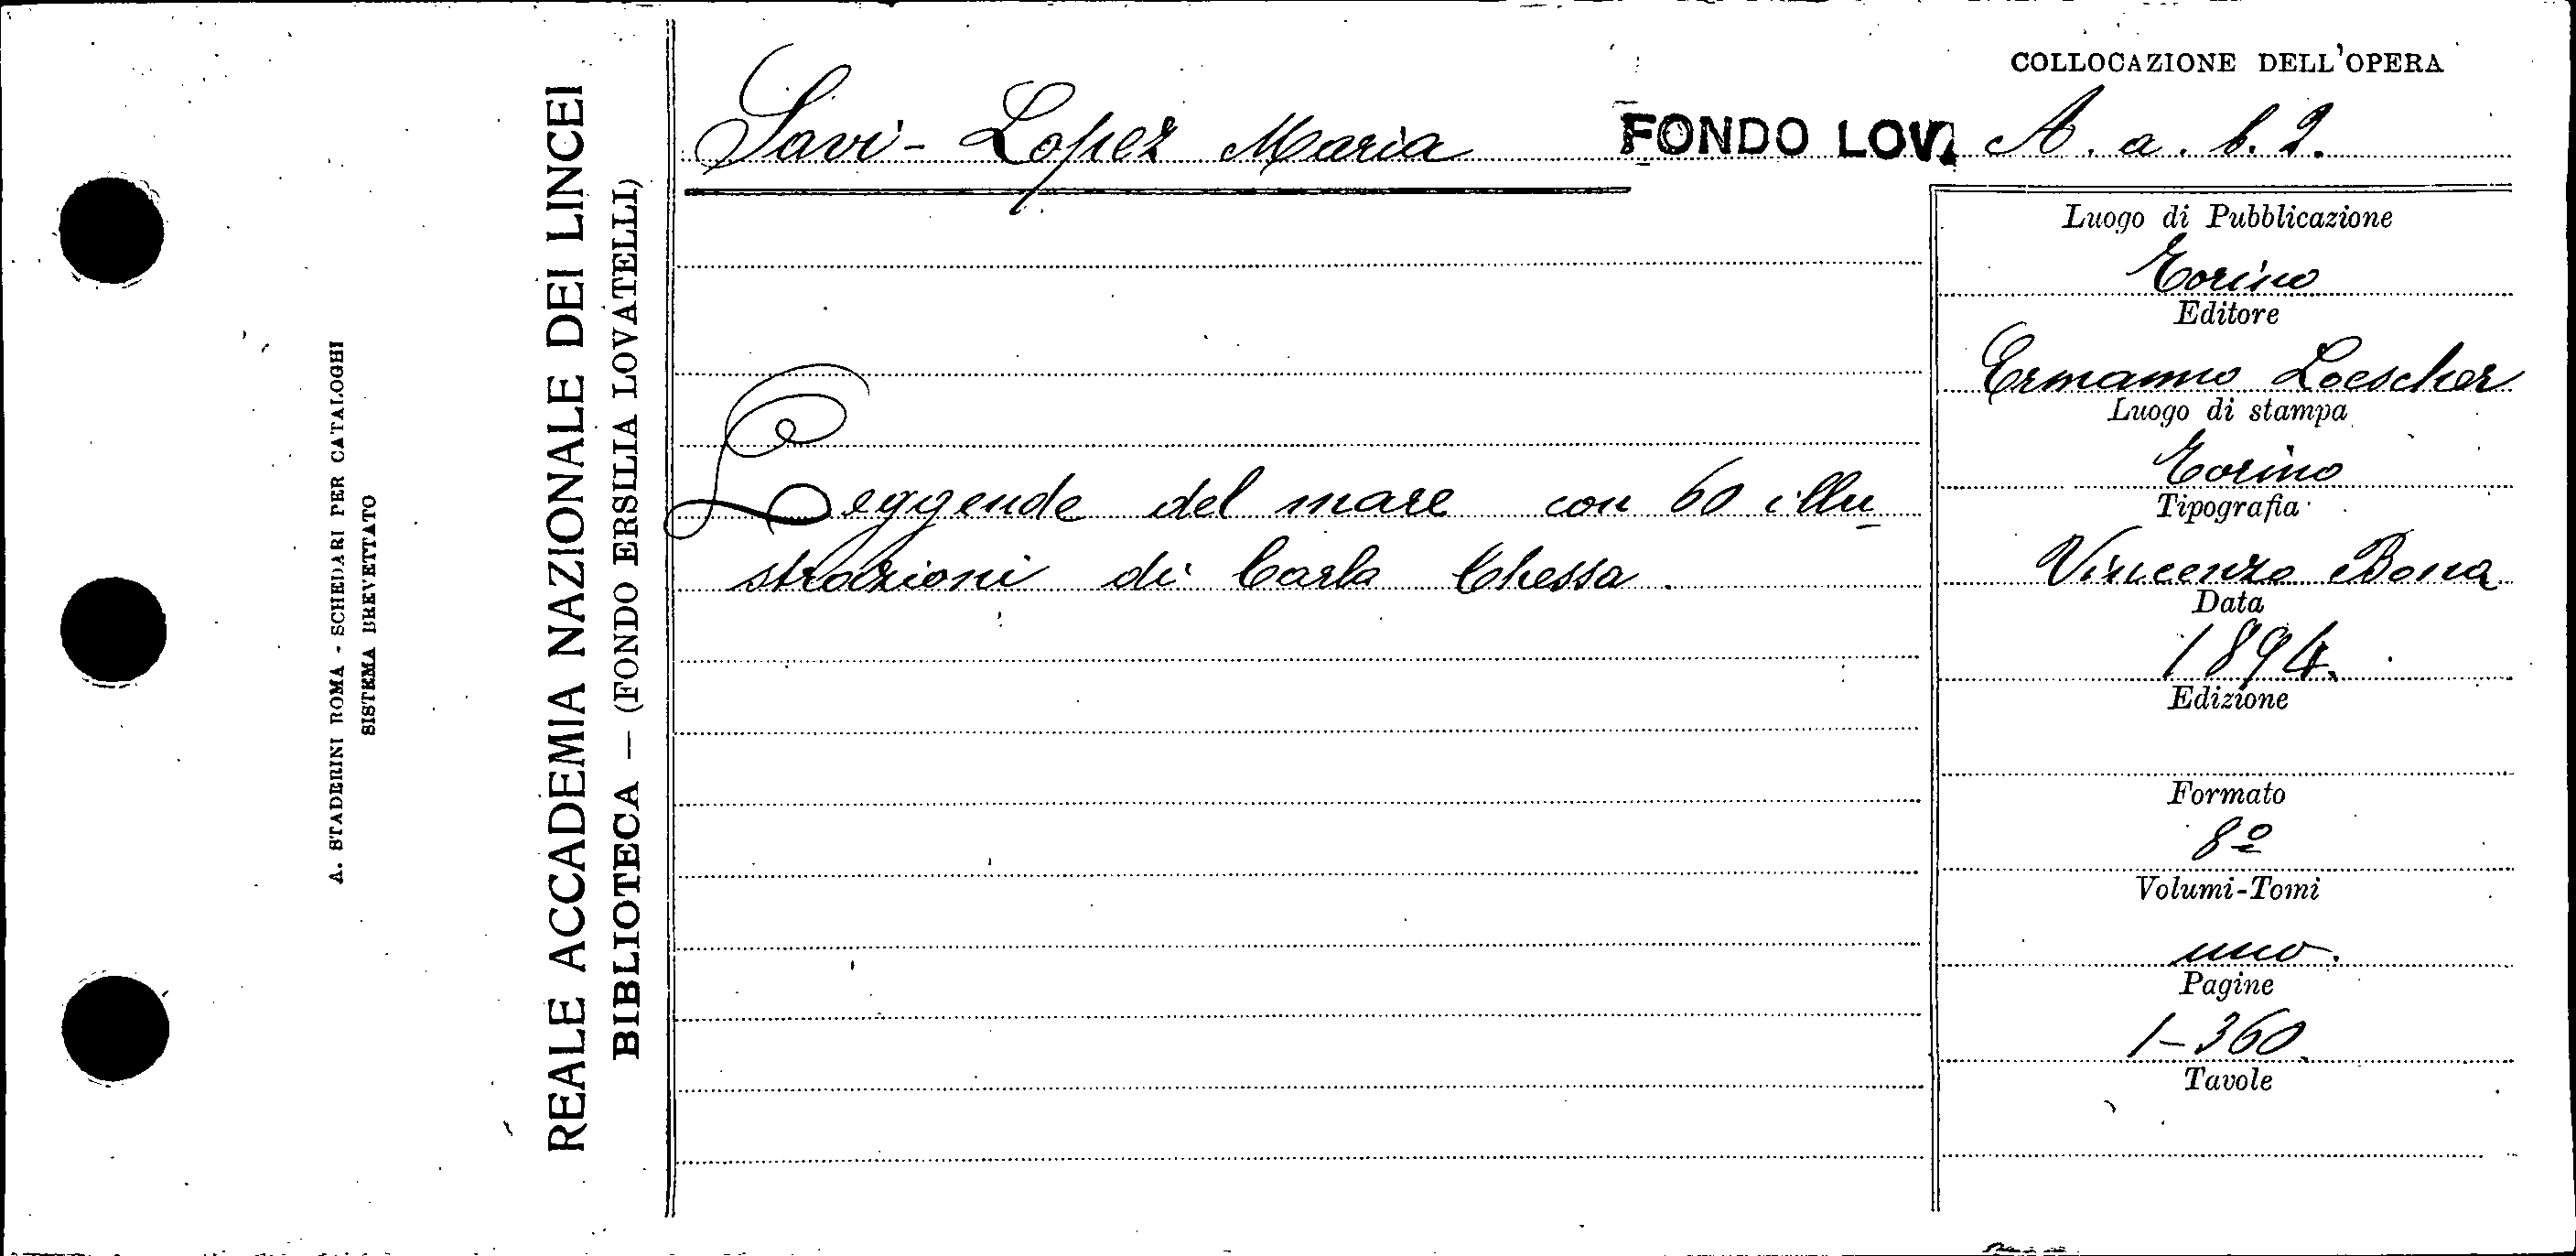 A. STADERINI ROMA - SCHEDARI PER CATALOGHI
SISTEMA BREVETTATO
REALE ACCADEMIA NAZIONALE DEI LINCEI
BIBLIOTECA — (FONDO ERSILIA LOVATELLI)
COLLOCAZIONE DELL'OPERA
Savi-Lopez Maria FONDO LOV. A. a. b. 2.
Leggende del mare con 60 illu
strazioni di Carlo Chessa.
Luogo di Pubblicazione
Torino
Editore
Ermanno Loescher
Luogo di stampa
Torino
Tipografia
Vincenzo Bona
Data
1894.
Edizione
Formato
8º
Volumi-Tomi
uno.
Pagine
1-360.
Tavole